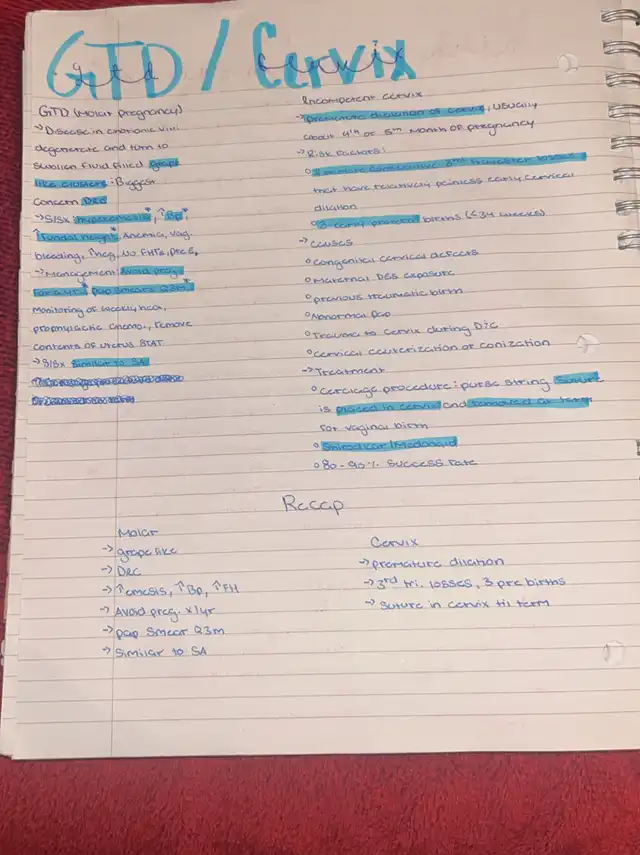 GTD / Cervix
GTD (Molar pregnancy)
→ Disease in chorionic villi
degenerate and turn to
swollen fluid filled grape
like clusters: Biggest
concern D&C
→ S/Sx: hyperemesis*, ↑BP*,
↑fundal height*, Anemia, vag.
bleeding, ↑hcg, no FHTs, pre E,
→ Management: Avoid preg.
for a yr.* pap smears Q3m.*
Monitoring of weekly hcg,
prophylactic chemo, remove
contents of uterus STAT
→ S/Sx similar to SA
Incompetent cervix
→ premature dilation of cervix, usually
about 4th or 5th month of pregnancy
→ Risk Factors:
that have relatively painless early cervical
dilation
3 early preterm births (<34 weeks)
→ causes
° congenital cervical defects
° Maternal DES exposure
° previous traumatic birth
° Abnormal Pap
° Trauma to cervix during D/C
° cervical cauterization or conization
→ Treatment
° Cerclage procedure: purse string suture
is placed in cervix and removed at term
for vaginal birth
° Shirodkar/McDonald
° 80-90% success rate
Recap
Molar
→ grape like
→ D&C
→ ↑emesis, ↑BP, ↑FH
→ Avoid preg. x1yr
→ pap smear Q3m
→ Similar to SA
Cervix
→ premature dilation
→ 3rd tri. losses, 3 pre births
→ Suture in cervix til term